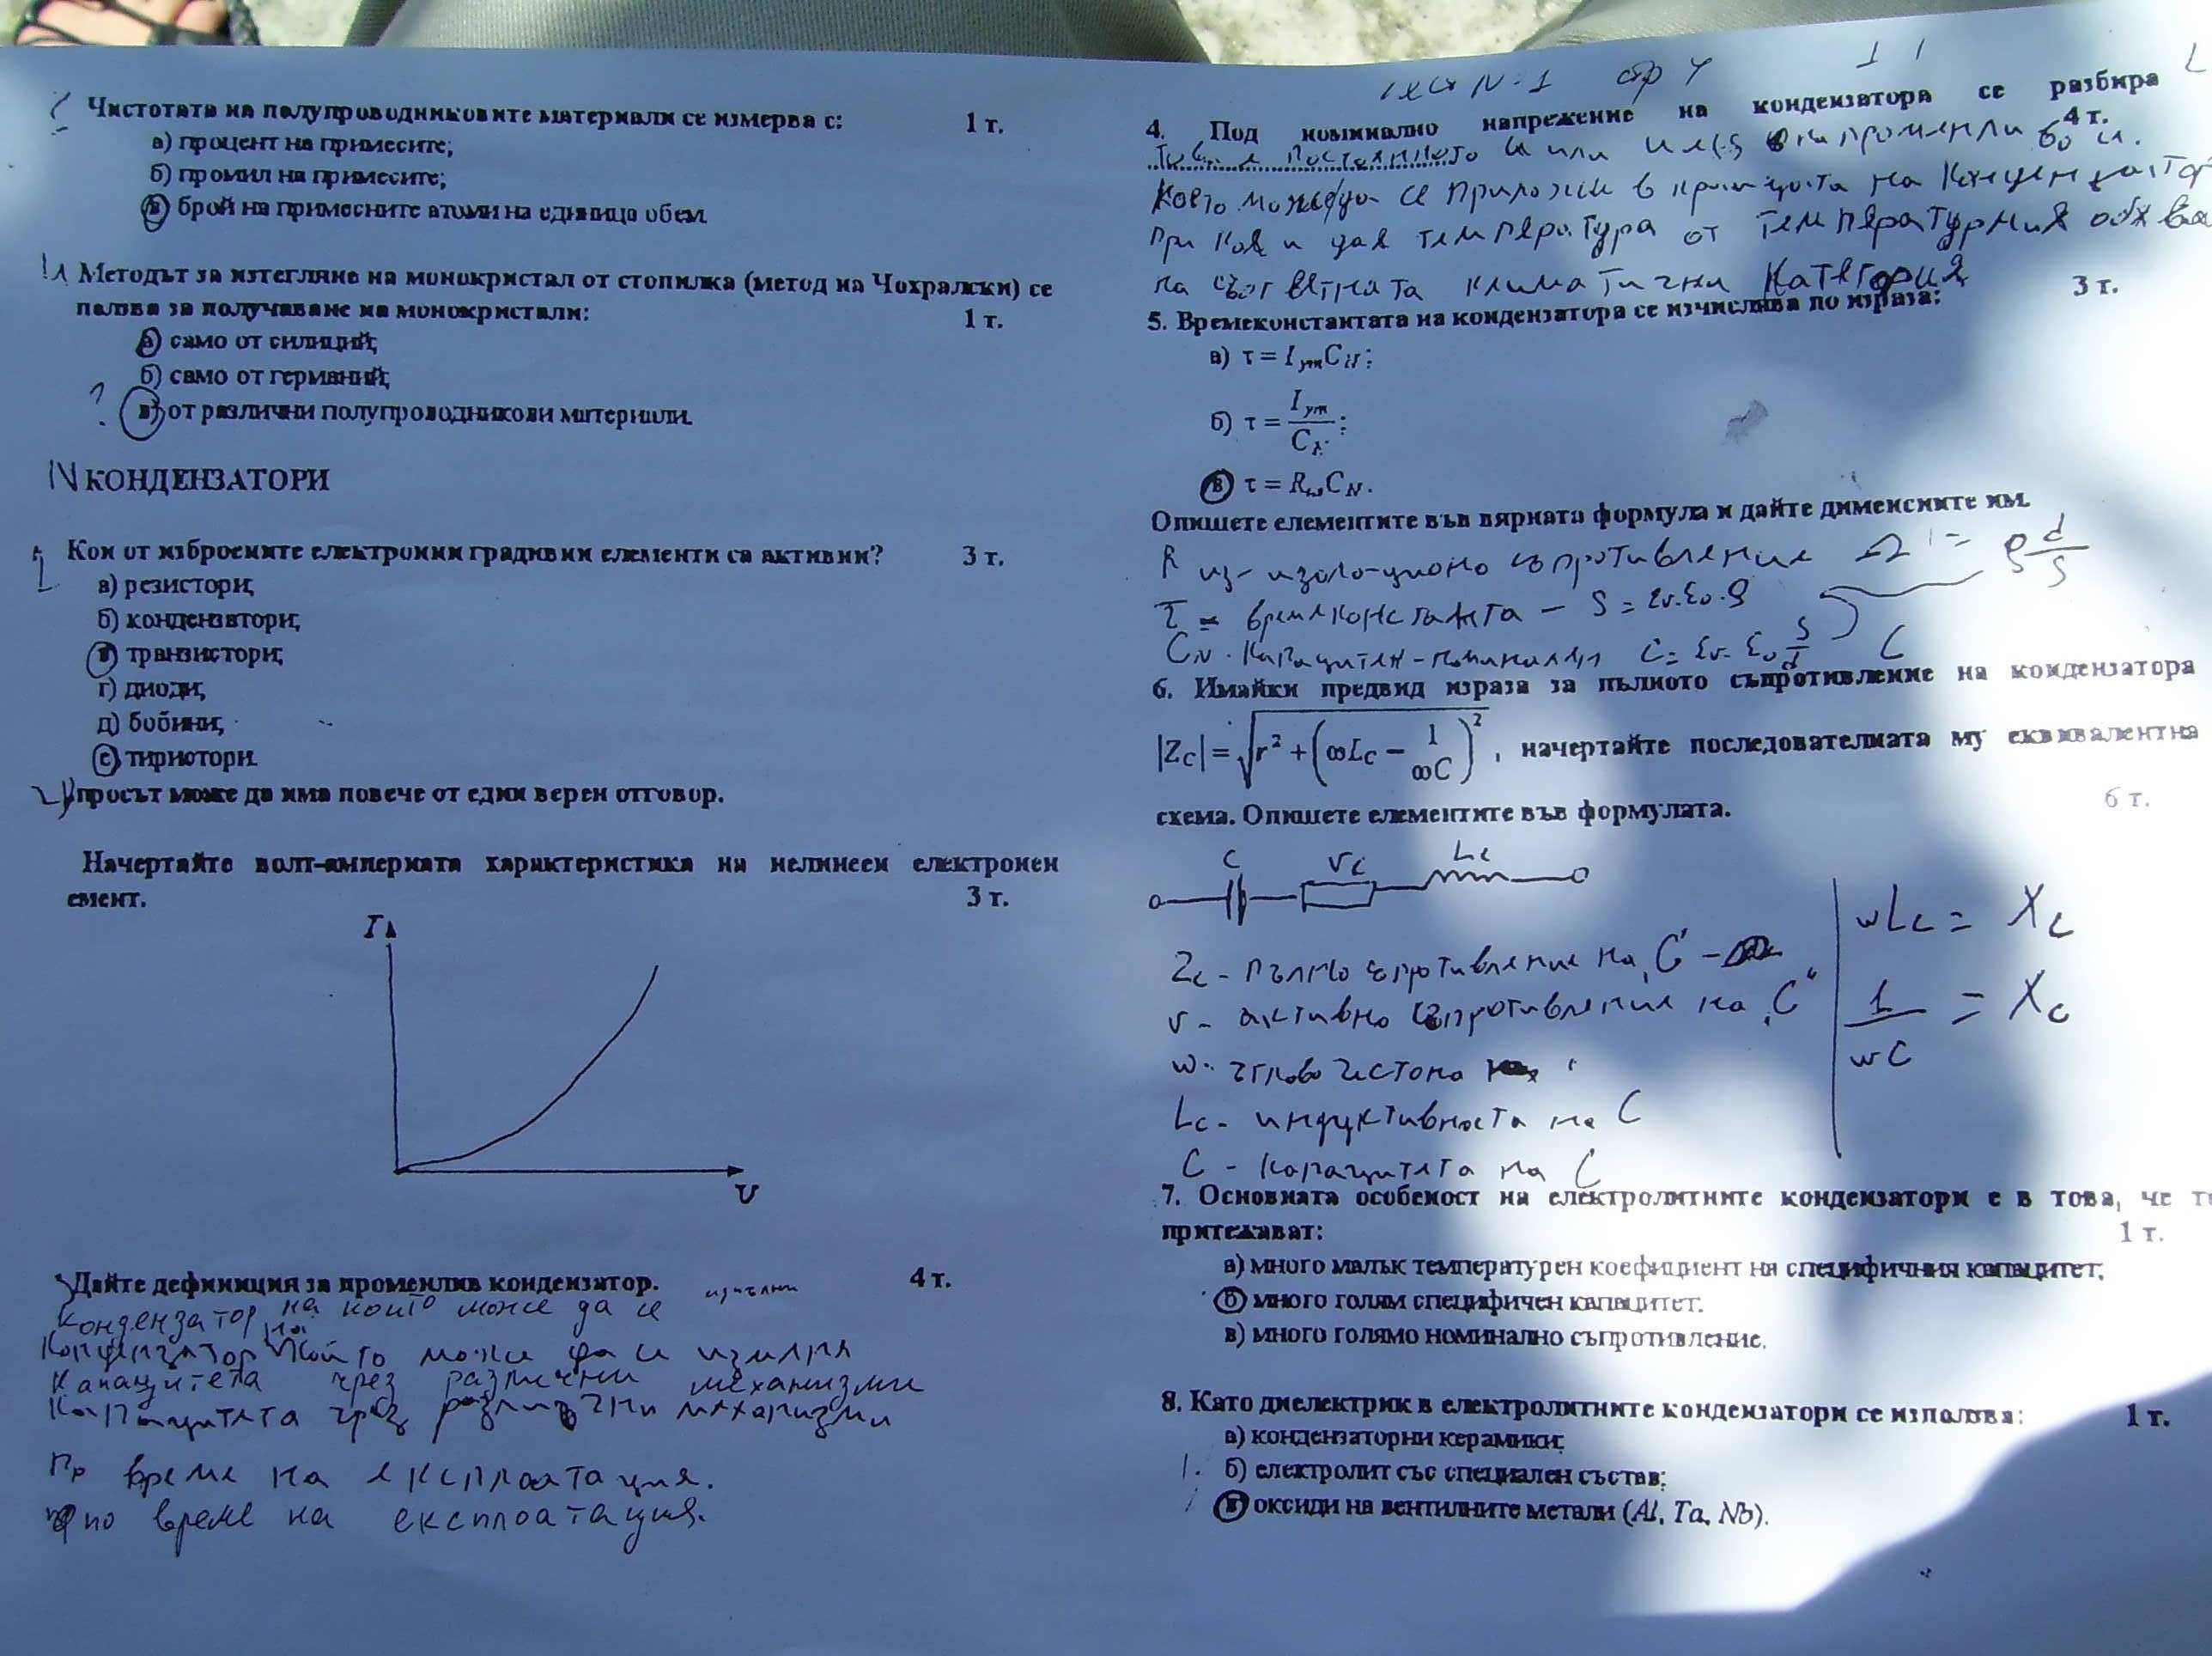 Чистотата на полупроводниковите материали се измерва с: 1 т.
а) процент на примесите;
б) промил на примесите;
в) брой на примесните атоми на единица обем.
Методът за изтегляне на монокристал от стопилка (метод на Чохралски) се
ползва за получаване на монокристали: 1 т.
а) само от силиций;
б) само от германий;
в) от различни полупроводникови материали.
IV КОНДЕНЗАТОРИ
Кои от изброените електронни градивни елементи са активни? 3 т.
а) резистори;
б) кондензатори;
в) транзистори;
г) диоди;
д) бобини;
е) тиристори.
просът може да има повече от един верен отговор.
Начертайте волт-амперната характеристика на нелинеен електронен
емент. 3 т.
I
U
Дайте дефиниция за променлив кондензатор. 4 т.
кондензатор на който може да се
Кондензатор на който може да се изменя
капацитета чрез различни механизми
Капацитета чрез различни механизми
По време на експлоатация.
по време на експлоатация.
стр
4. Под номинално напрежение на кондензатора се разбира
4 т.
което може да се приложи в на кондензатор
при коя и да е температура от температурния обхва
на съответната климатични категория
3 т.
5. Времеконстантата на кондензатора се изчислява по израза:
а) τ = I ут C N ;
б) τ = I ут / C N ;
в) τ = R из C N .
Опишете елементите във вярната формула и дайте дименсиите им.
R из - изолационо съпротивление Ω = ρ d/S
τ = времеконстанта - S = εr.ε0.ρ
CN - Капацитет - номинален C = εr.ε0 S/d
6. Имайки предвид израза за пълното съпротивление на кондензатора
|Z C| = √(r² + (ωL C − 1/ωC)²) , начертайте последователната му еквивалентна
схема. Опишете елементите във формулата. 6 т.
C rc Lc
Zc - пълно съпротивление на "C"
r - активно съпротивление на "C"
ω - ъглова честота
Lc - индуктивността на C
C - капацитета на C
ωLc = XL
1/ωC = Xc
7. Основната особеност на електролитните кондензатори е в това, че т
притежават: 1 т.
а) много малък температурен коефициент на специфичния капацитет;
б) много голям специфичен капацитет.
в) много голямо номинално съпротивление.
8. Като диелектрик в електролитните кондензатори се използва: 1 т.
а) кондензаторни керамики;
б) електролит със специален състав;
в) оксиди на вентилните метали (Al, Ta, Nb).